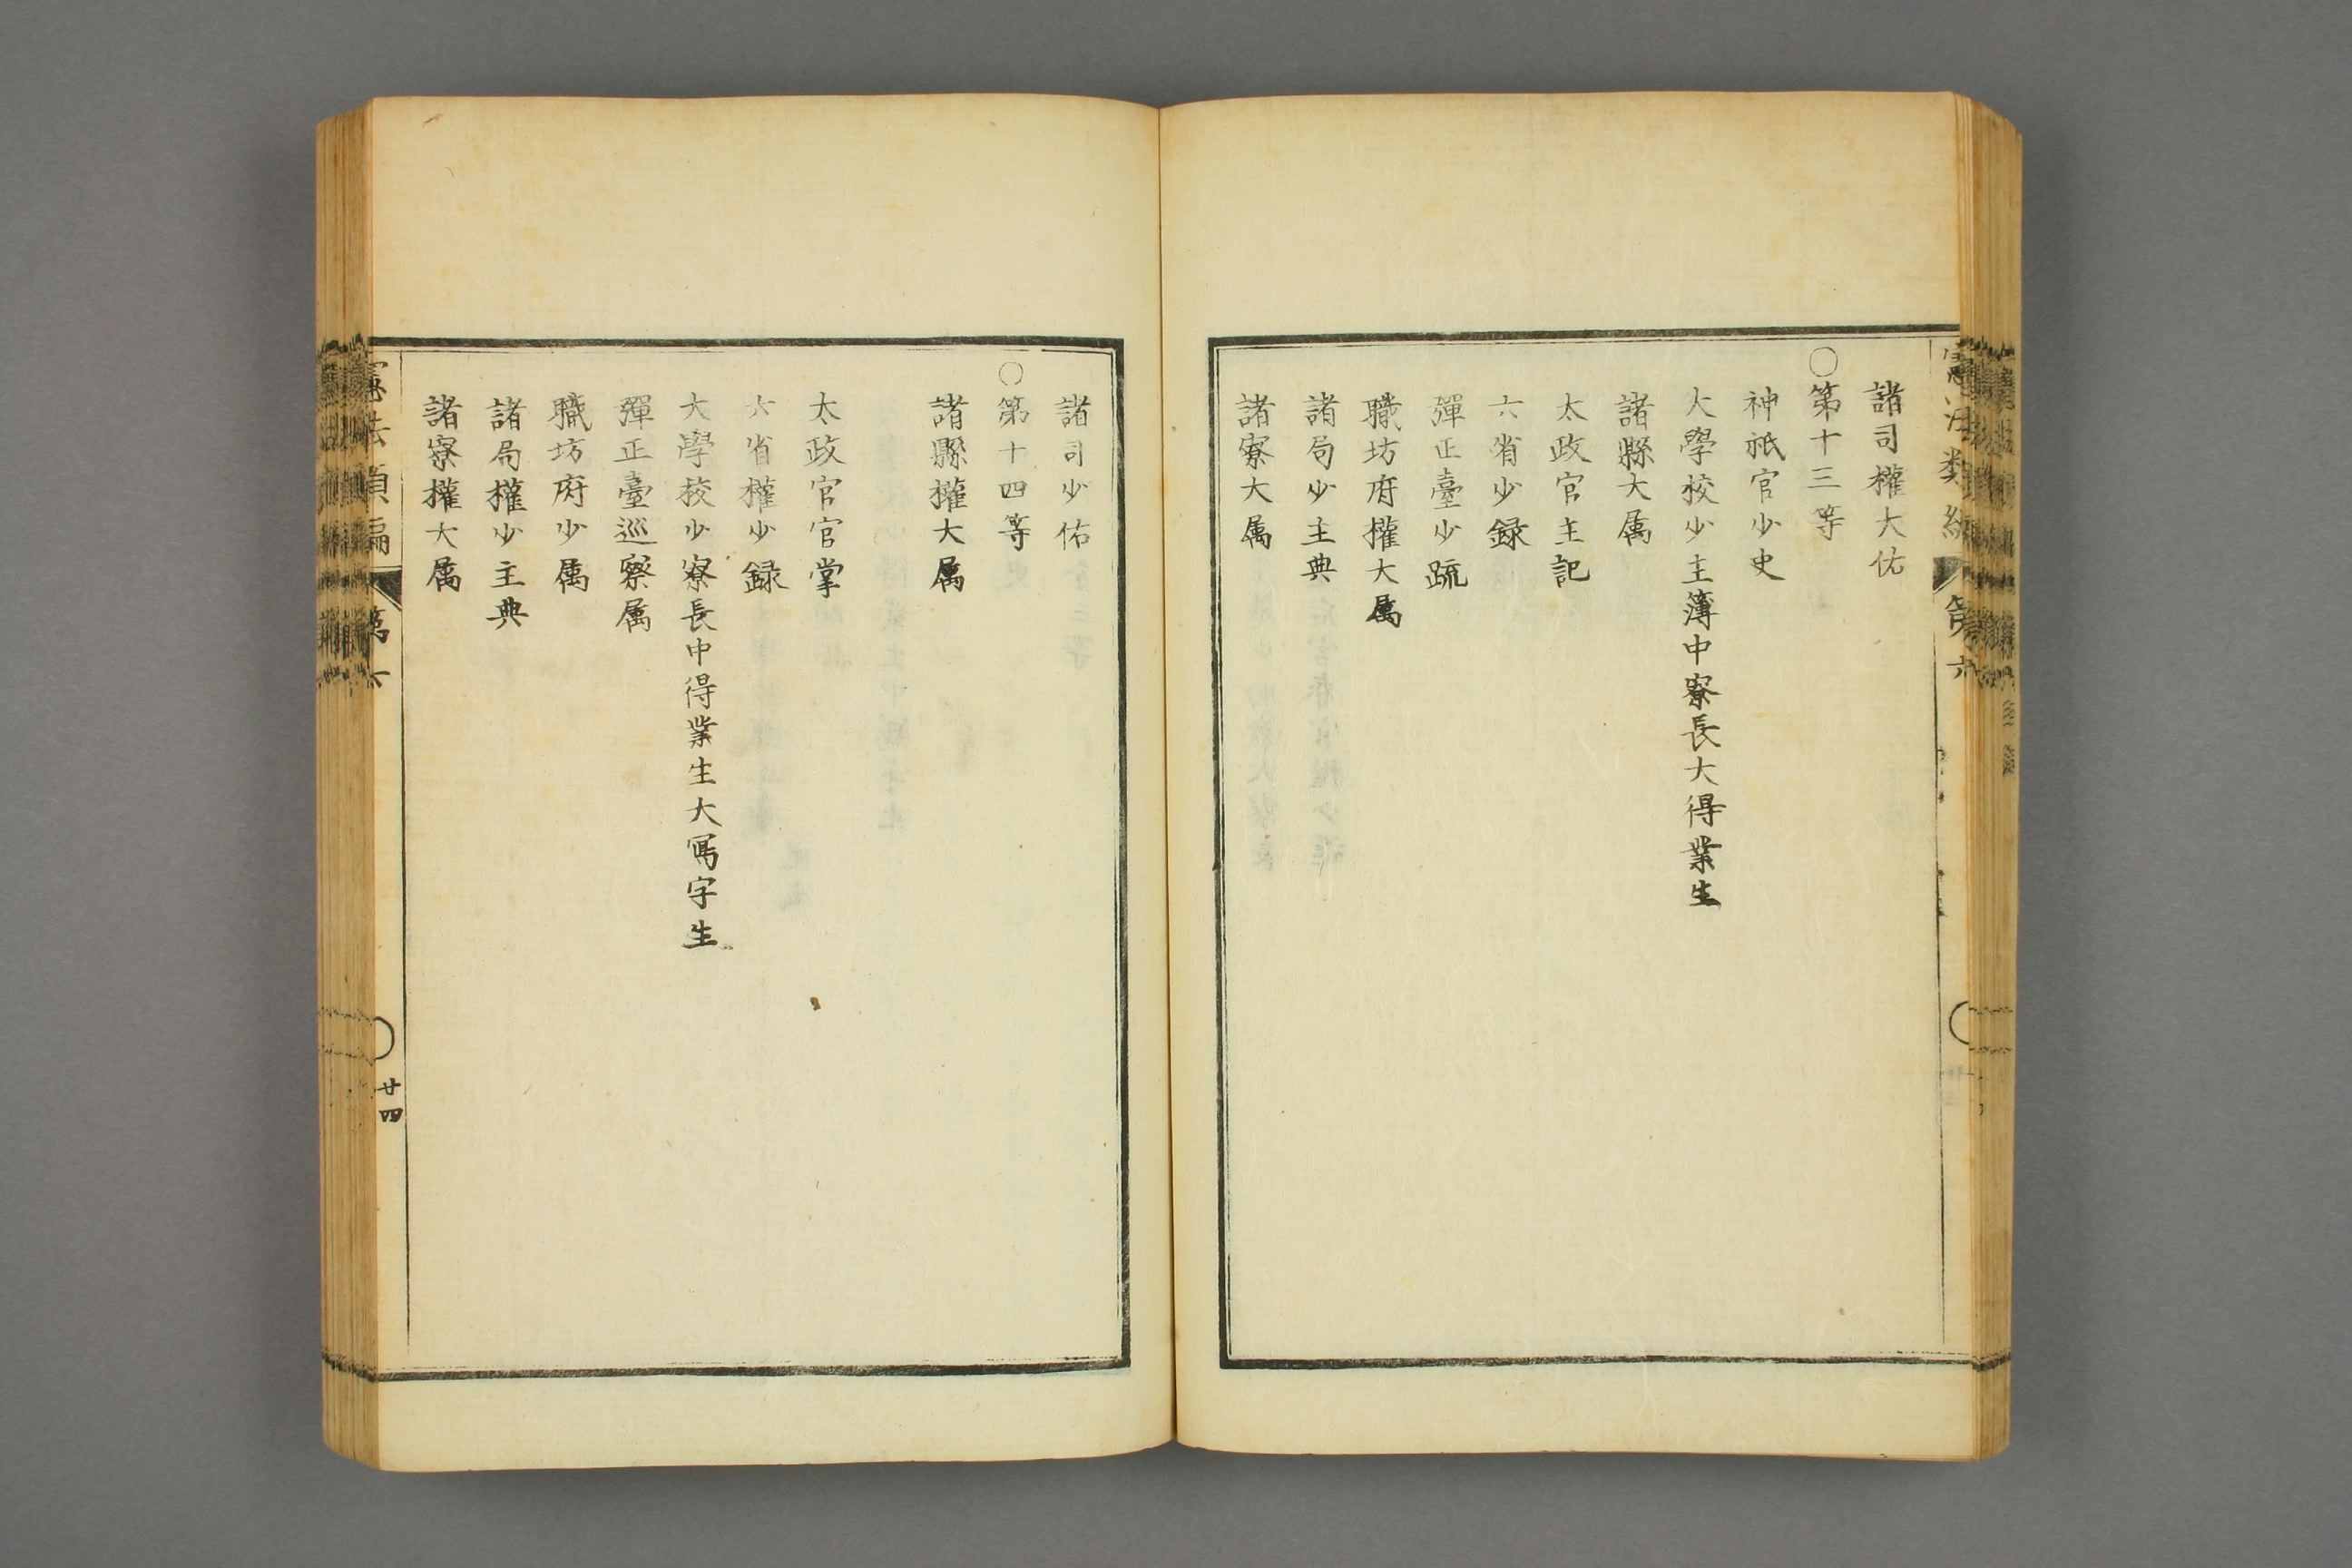 諸司權大佑
○第十三等
神祇官少史
大學校少主簿中寮長大得業生
諸縣大属
太政官主記
六省少録
彈正臺少疏
職坊府權大属
諸局少主典
諸寮大属
諸司少佑
○第十四等
諸縣權大属
太政官官掌
六省權少録
大學校少寮長中得業生大寫字生
彈正臺巡察属
職坊府少属
諸局權少主典
諸寮權大属
憲法類編
第六
廿四